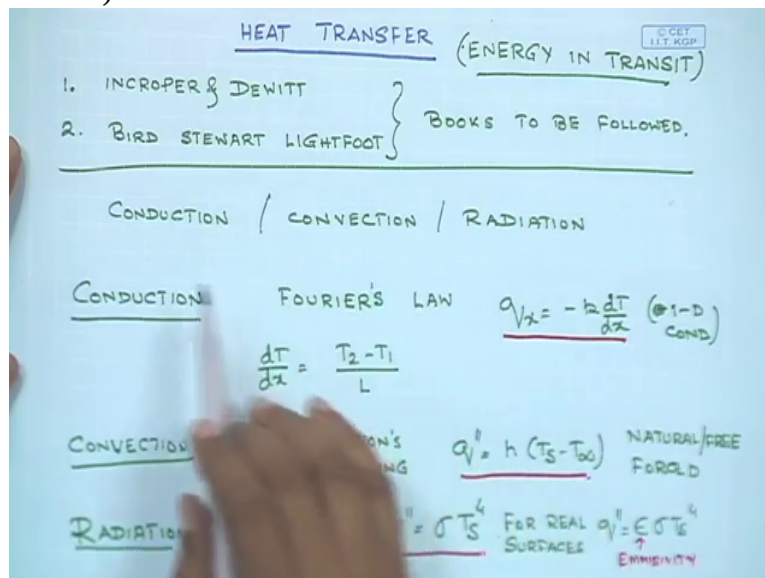 HEAT TRANSFER (ENERGY IN TRANSIT)
© CET
I.I.T. KGP
1. INCROPER & DEWITT
2. BIRD STEWART LIGHTFOOT
BOOKS TO BE FOLLOWED.
CONDUCTION / CONVECTION / RADIATION
CONDUCTION FOURIER'S LAW qx = -k dT/dx (1-D COND)
dT/dx = T2-T1/L
CONVECTION q" = h (Ts-T∞) NATURAL/FREE
FORCED
RADIATION " = σTs⁴ FOR REAL SURFACES q" = ϵσTs⁴
EMMISIVITY